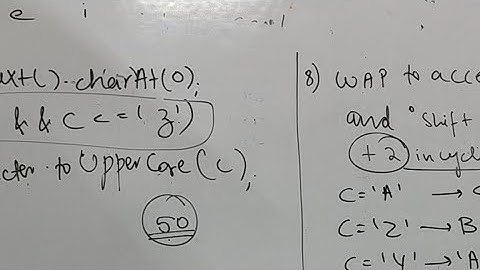 e i
ext().charAt(0);
&& c <= 'z')
cter.toUpperCase(c);
50
8) WAP to acce
and "shift
+2 in cycli
C='A' → C
C='Z' → B
C='Y' → 'A